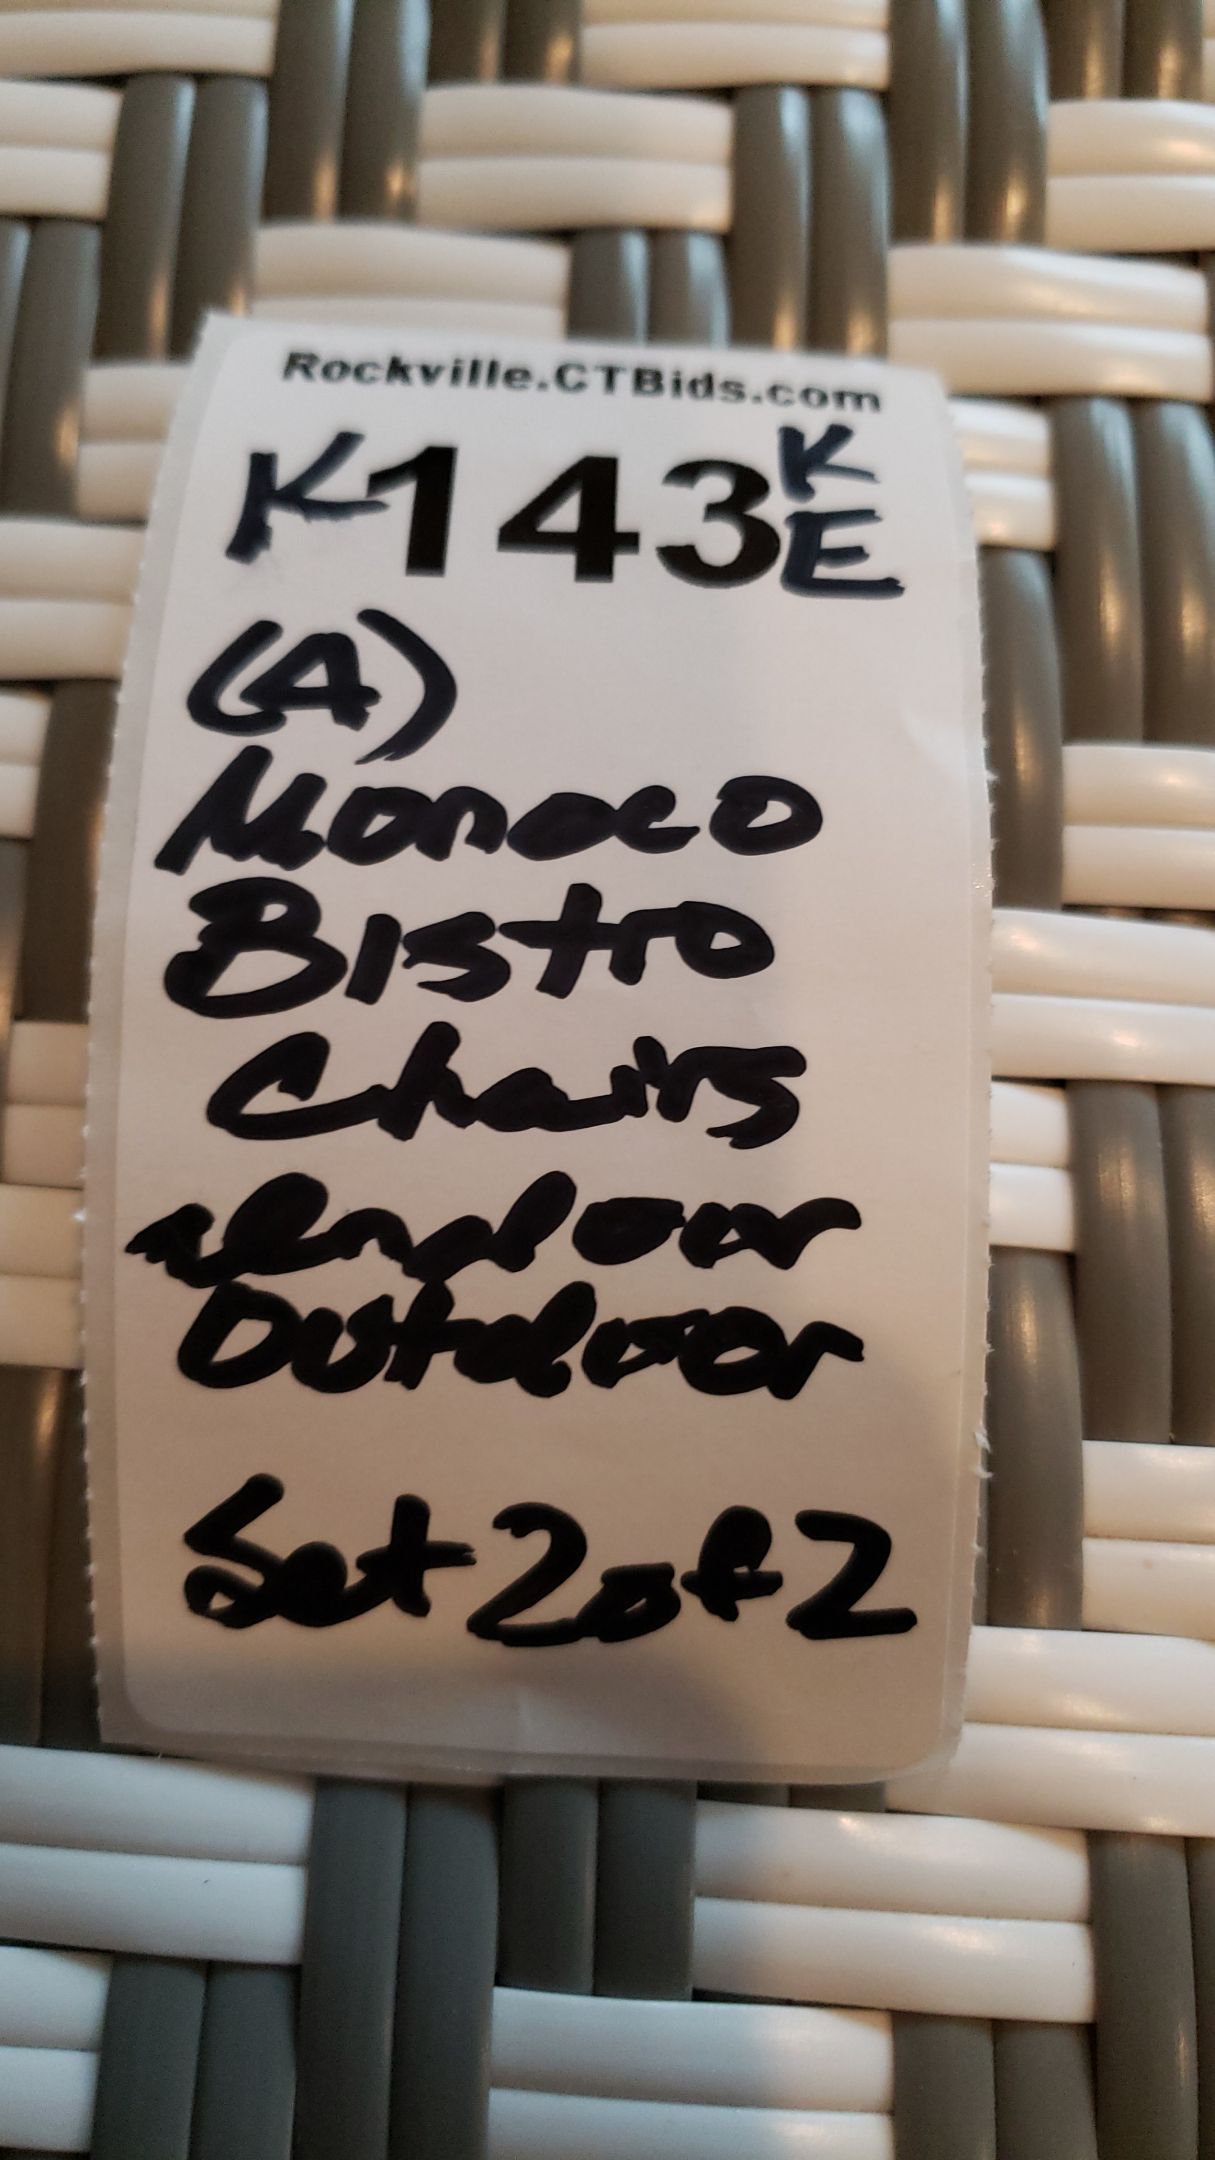 Rockville.CTBids.com
K143 K
E
(4)
Monaco
Bistro
Chairs
Indoor
Outdoor
Set 2 of 2